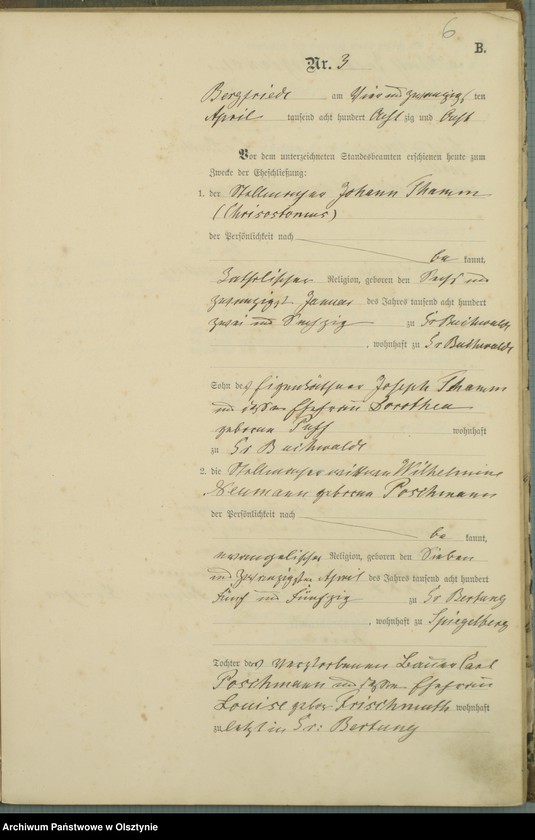 6
B.
Nr. 3
Bergfriede am Vier und zwanzigsten
April tausend acht hundert Acht zig und Acht
Vor dem unterzeichneten Standesbeamten erschienen heute zum
Zwecke der Eheschließung:
1. der Stellmacher Johann Thamm
(Chrisostomus)
der Persönlichkeit nach
be kannt,
katholischer Religion, geboren den Sechs und
zwanzigst Januar des Jahres tausend acht hundert
zwei und Sechzig zu Gr Buchwalde
, wohnhaft zu Gr Buchwalde
Sohn des Eigenkäthner Joseph Thamm
und dessen Ehefrau Dorothea
geborene wohnhaft
zu Gr Buchwalde
2. die Stellmacherwittwe Wilhelmine
Neumann geborene Poschmann
der Persönlichkeit nach
be kannt,
evangelischer Religion, geboren den Sieben
und Zwanzigsten April des Jahres tausend acht hundert
Fünf und Fünfzig zu Gr Bertung
, wohnhaft zu Spiegelberg
Tochter des verstorbenen Bauer Carl
Poschmann und dessen Ehefrau
Louise gebor Frischmuth wohnhaft
zu letzt in Gr: Bertung
Archiwum Państwowe w Olsztynie